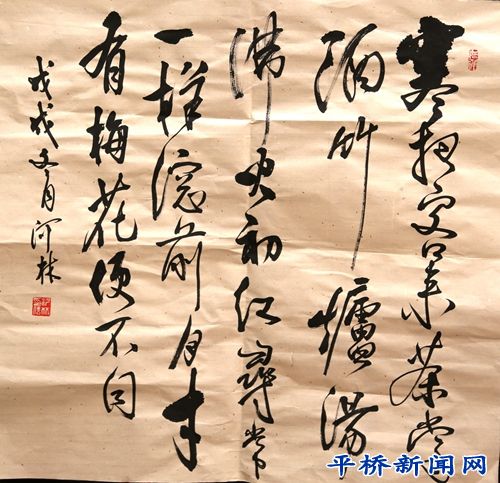 寒夜客来茶当
酒竹爐湯
沸火初红尋常
一樣窓前月才
有梅花便不同
戊戌月林
平桥新闻网